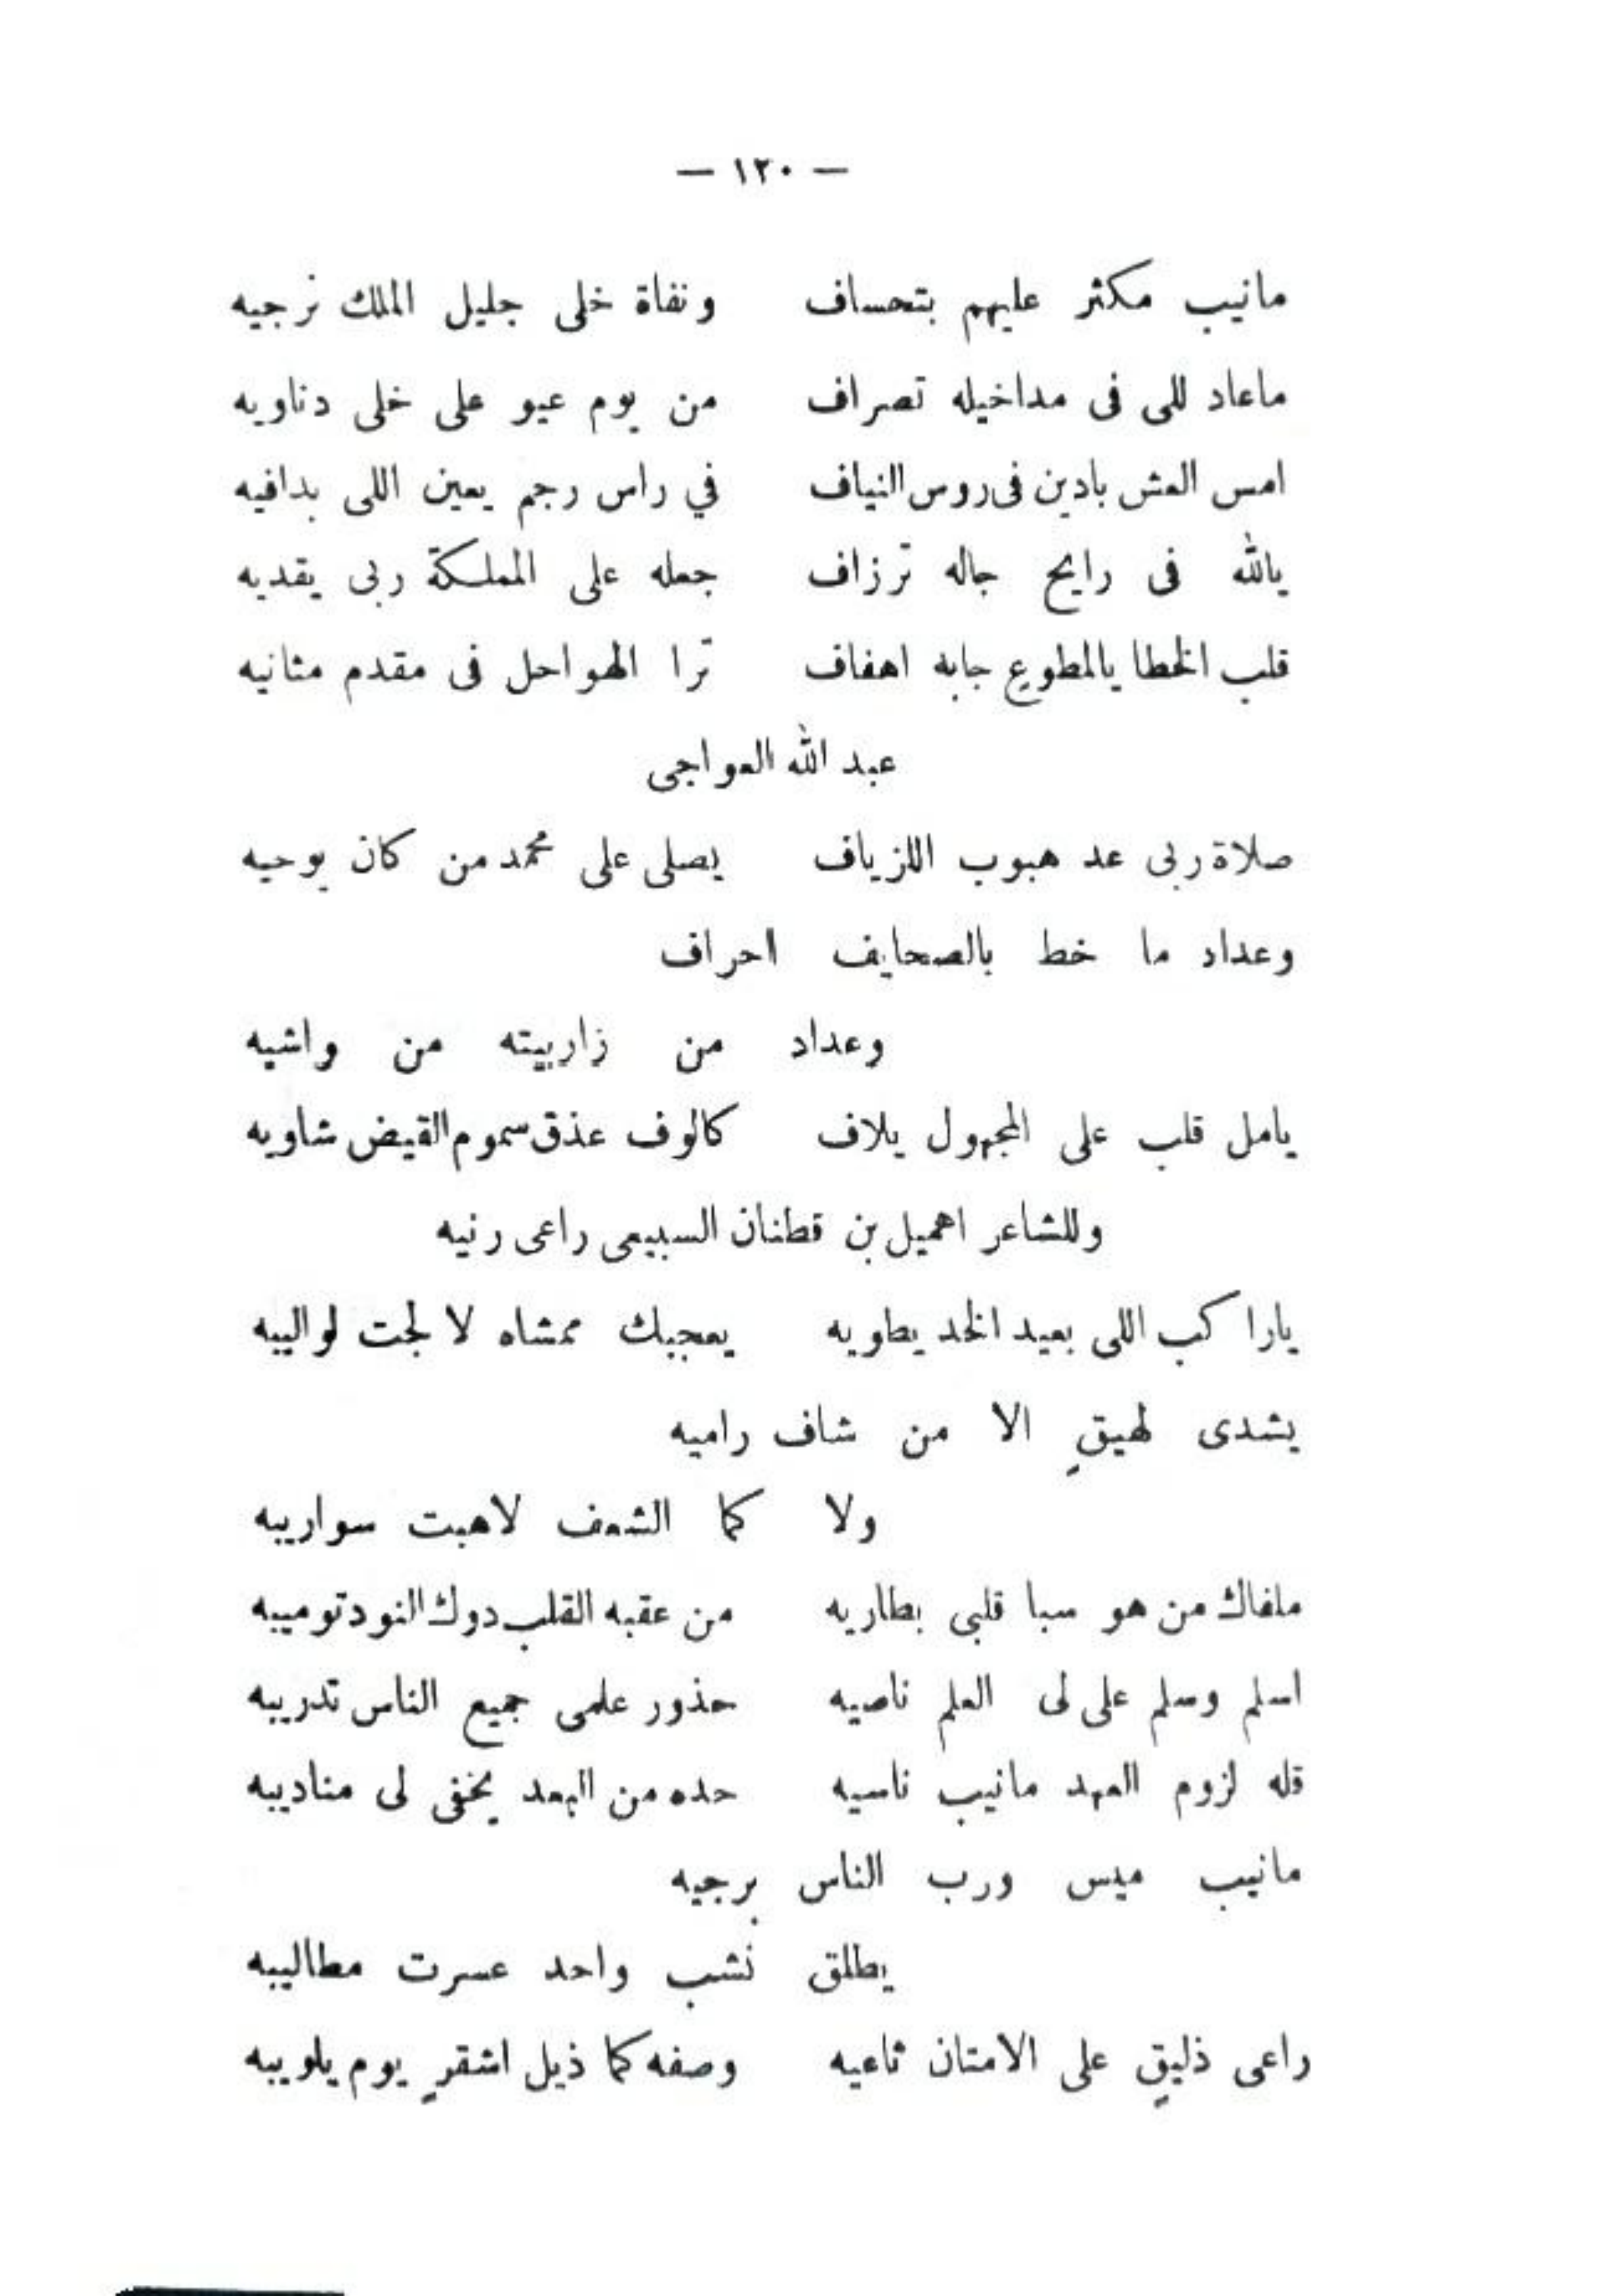 — ١٢٠ —
مانيب مكثر عليهم بتحساف ونفاة خلى جليل الملك نرجيه
ماعاد للى فى مداخيله تصراف من يوم عيو على خلى دناويه
امس العش بادين فى روس النياف في راس رجم يعين اللى بدافيه
يالله فى رايح جاله ترزاف جعله على المملكة ربى يقديه
قلب الخطا يالمطوع جابه اهفاف ترا الهواحل فى مقدم مثانيه
عبد الله العواجى
صلاة ربى عد هبوب اللزياف يصلى على محمد من كان يوحيه
وعداد ما خط بالصحايف احراف
وعداد من زاربيته من واشيه
يامل قلب على المجهول يلاف كالوف عذق سموم القيض شاويه
وللشاعر اهميل بن قطنان السبيعى راعى رنيه
يارا كب اللى بعيد الخد يطويه يعجبك ممشاه لا لجت لواليبه
يشدى لهيقٍ الا من شاف راميه
ولا كما الشعف لاهبت سواريبه
ملفاك من هو سبا قلبى بطاريه من عقبه القلب دوك النود توميبه
اسلم وسلم على لى العلم ناصيه حذور علمى جميع الناس تدريبه
قله لزوم العهد مانيب ناسيه حده من البعد يخفى لى مناديبه
مانيب ميس ورب الناس برجيه
يطلق نشب واحد عسرت مطاليبه
راعى ذليقٍ على الامتان ثاعيه وصفه كما ذيل اشقرٍ يوم يلويبه